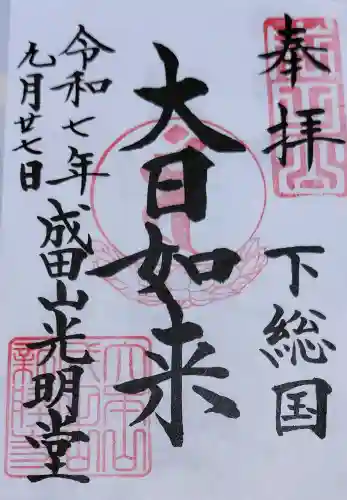 奉拝
下総国
大日如来
令和七年
九月廿七日
成田山光明堂